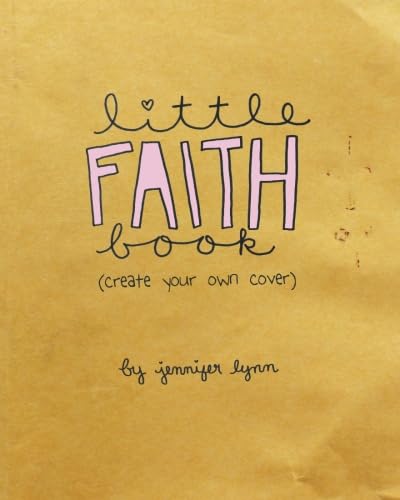 little
FAITH
book
(create your own cover)
by jennifer lynn